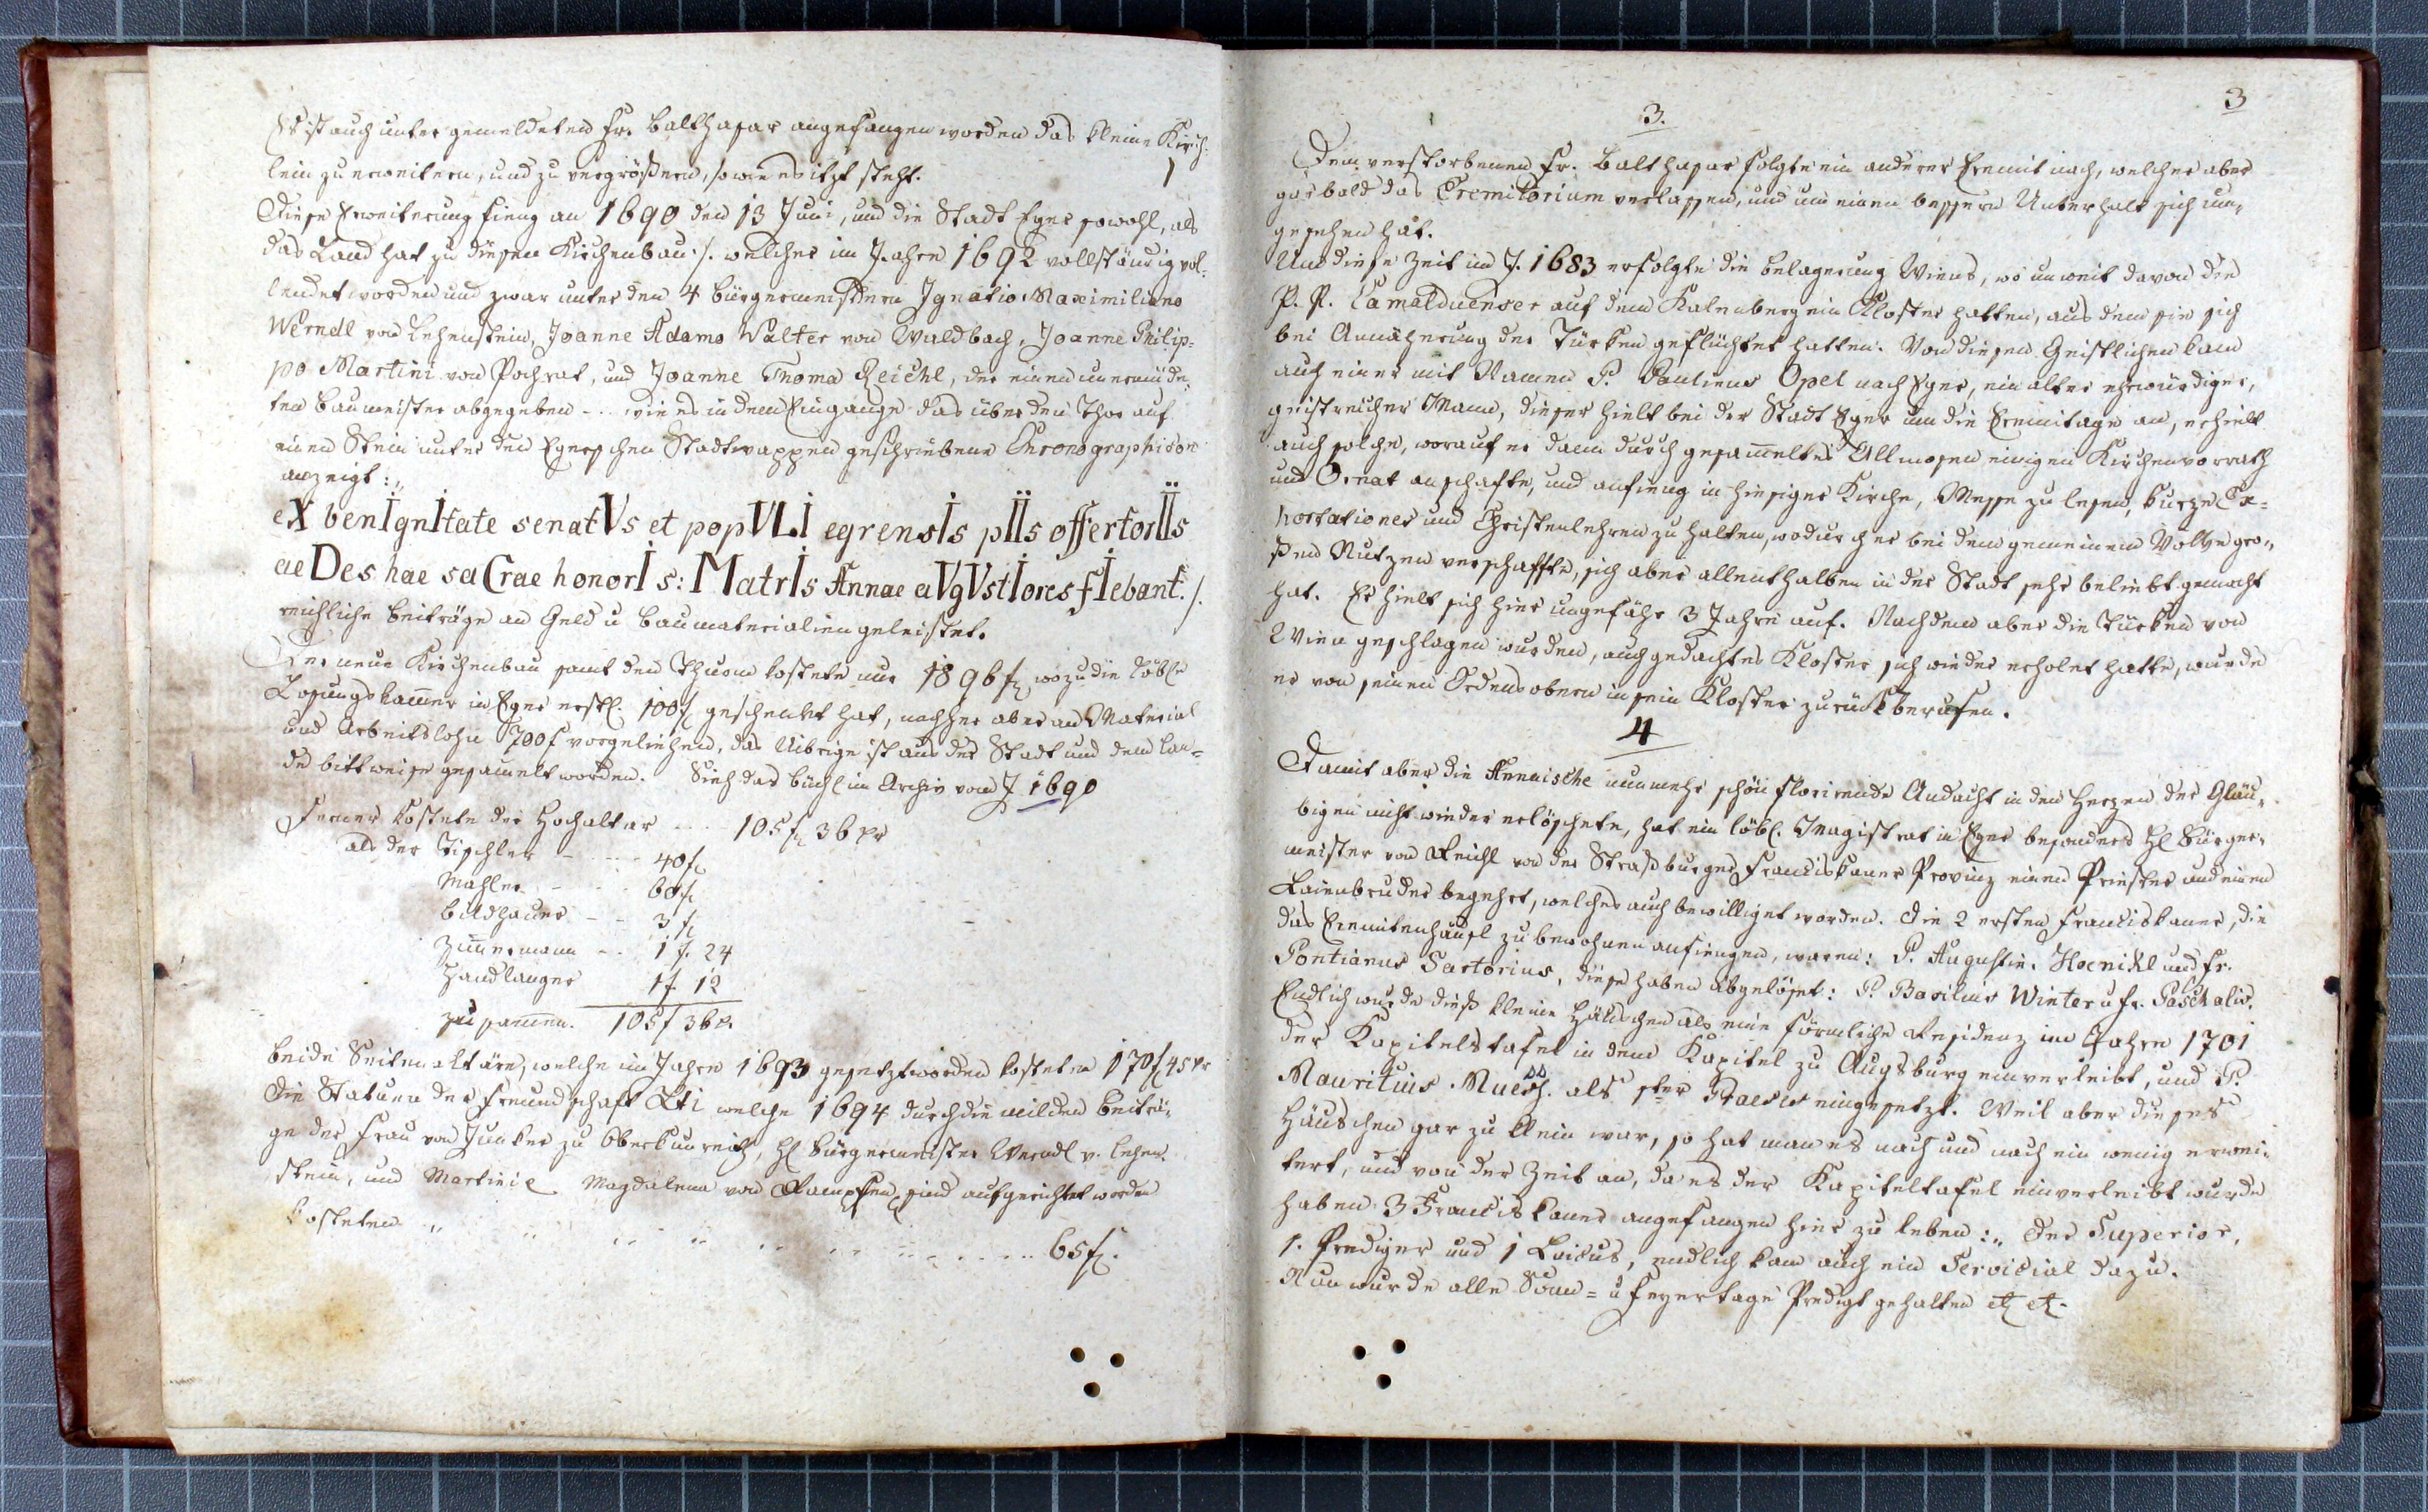 Es ist auch unter gemeldeten Fr. Balthasar angefangen worden das kleine Kirch-
lein zu erweitern, und zu vergrößern, so wie es itzt steht.
Diese Erweiterung fieng an 1690 den 13 Juni, und die Stadt Eger sowohl, als
das Land hat zu diesen Kirchenbau ./. welcher im Jahre 1692 vollständig vol-
lendet worden und zwar unter den 4 Bürgermeistern Ignatio Maximiliano
Werndl von Lehenstein, Joanne Adamo Walter von Waldbach, Joanne Philip-
po Martini von Pochrat, und Joanne Thoma Reichl, der einen unermüde-
ten Baumeister abgegeben - .. wie es in dem Eingange das über den Thor auf
einen Stein unter den Egerschen Stadtwappen geschriebene Chronographicon
anzeigt :„
eX benIgnItate senatVs et popVLI egrensIs pIIs offertorIIs
aeDes hae saCrae honorI s: MatrIs Annae aVgVstIores fIebant. /.
reichliche Beiträge an Geld u Baumaterialien geleistet.
Der neue Kirchenbau samt den Thurm kostete nur 1896 f wozu die löbl
Losungskammer in Eger erstl. 100 f geschenkt hat, nachher aber an Material
und Arbeitslohn 700 f vorgeliehen, das Uibrige ist aus der Stadt und dem Lan-
de bittweise gesamelt worden. Sieh das Büchl im Archiv vom J 1690
Ferner kostete der Hochaltar - - - 105 f 36 kr
als der Tischler - - - - 40 f
Mahler - - - 60 f
Bildhauer - - 3 f
Zimmermann - - 1 f. 24
Handlanger 1 f. 12
zusammen. 105 f 36 kr
Beide Seitenaltäre, welche im Jahre 1693 gesetzt worden kosteten 170 f 45 kr
Die Statuen der Freundschaft Xti welche 1694 durch die milden Beiträ-
ge der Frau von Junker zu Oberkunreith, H Bürgermeister Werndl v. Lehen-
stein, und Martinie Magdalena von Rampfen, sind aufgerichtet worden
kosteten „ „ „ „ „ „ - - - - 65 f.
3
3.
Dem verstorbenen Fr. Balthasar folgte ein anderer Eremit nach, welcher aber
gar bald das Eremitorium verlassen, und um einen bessern Unterhalt sich um-
gesehen hat.
Um diese Zeit im J. 1683 erfolgte die Belagerung Wiens, wo unweit davon die
P. P. Camalduenser auf dem Kalenberg ein Kloster hatten, aus dem sie sich
bei Annäherung der Türken geflüchtet hatten. Von diesen Geistlichen kam
auch einer mit Namen P. Paulinus Opel nach Eger, ein alter ehrwürdiger,
geistreicher Mann, dieser hielt bei der Stadt Eger um die Eremitage an, erhielt
auch solche, worauf er dann durch gesammeltes Allmosen einigen Kirchenvorrath
und Ornat anschafte, und anfieng in hiesiger Kirche, Messe zu lesen, kurze Ex-
hortationes und Christenlehren zu halten, wodurch er bei dem gemeinem Volke gro-
ßen Nutzen verschaffte, sich aber allenthalben in der Stadt sehr beliebt gemacht
hat. Er hielt sich hier ungefähr 3 Jahre auf. Nachdem aber die Türken von
Wien geschlagen wurden, auch gedachtes Kloster sich wieder erholet hatte, wurde
er von seinen Ordensobern in sein Kloster zurückberufen.
4
Damit aber die Annaische nunmehr schön florirende Andacht in den Herzen der Gläu-
bigen nicht wieder erlöschete, hat ein löbl. Magistrat in Eger besonders H Bürger-
meister von Reichl von der Straßburger Franciskaner Provinz einen Priester und einen
Laienbruder begehrt, welches auch bewilliget worden. Die 2 ersten Franciskaner, die
das Eremitenhäusl zu bewohnen anfiengen, waren: P. Augustin. Hoenikl und Fr.
Pontianus Sartorius, diese haben abgelöset: P. Basilius Winter u Fr. Paschalis.
Endlich wurde dieß kleine Häuschen als eine förmliche Residenz im Jahre 1701
der Kapitelstafel in dem Kapitel zu Augsburg einverleibt, und P.
Mauritius als 1ter Praeses eingesetzt. Weil aber dieses
Häuschen gar zu klein war, so hat man es nach und nach ein wenig erwei-
tert, und von der Zeit an, da es der Kapiteltafel einverleibt wurde
haben 3 Franciskaner angefangen hier zu leben :„ der Superior,
1. Prediger und 1 Laicus, endlich kam auch ein Servicial dazu.
Nun wurde alle Sonn= u Feyertage Predigt gehalten etc etc.